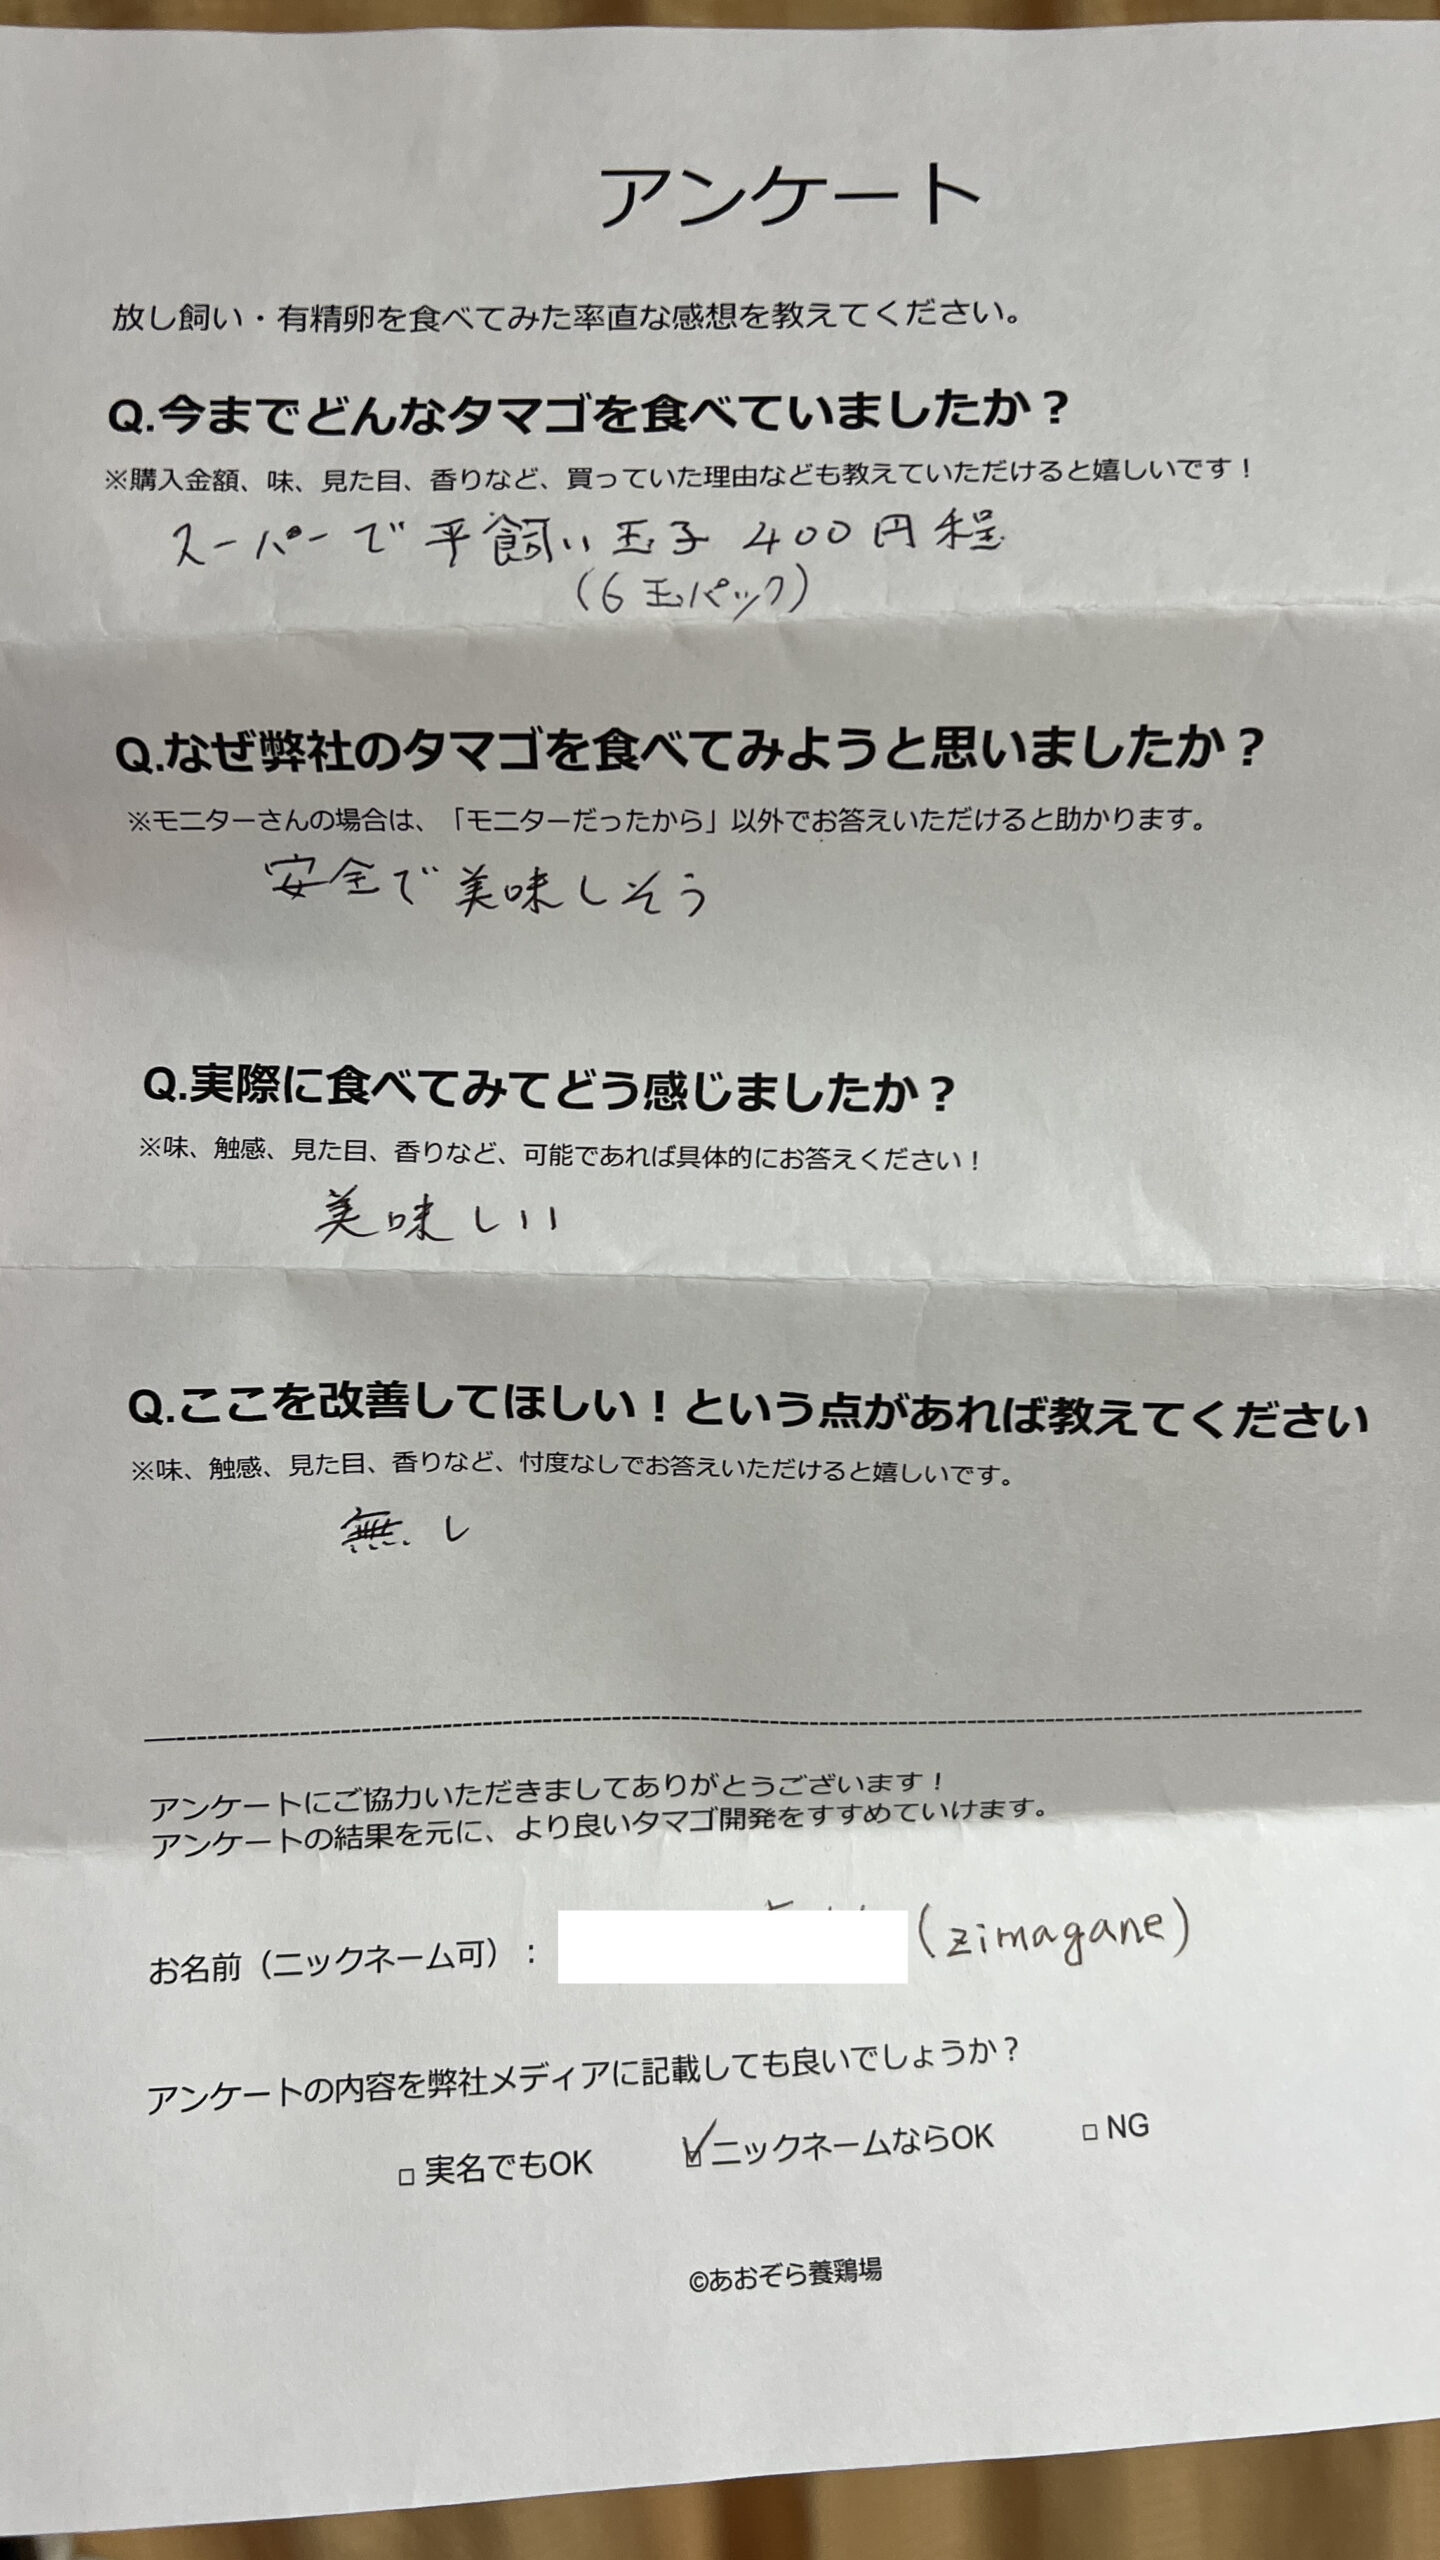 アンケート
放し飼い・有精卵を食べてみた率直な感想を教えてください。
Q.今までどんなタマゴを食べていましたか？
※購入金額、味、見た目、香りなど、買っていた理由なども教えていただけると嬉しいです！
スーパーで平飼い玉子 400円程
(6玉パック)
Q.なぜ弊社のタマゴを食べてみようと思いましたか？
※モニターさんの場合は、「モニターだったから」以外でお答えいただけると助かります。
安全で美味しそう
Q.実際に食べてみてどう感じましたか？
※味、触感、見た目、香りなど、可能であれば具体的にお答えください！
美味しい
Q.ここを改善してほしい！という点があれば教えてください
※味、触感、見た目、香りなど、忖度なしでお答えいただけると嬉しいです。
無し
アンケートにご協力いただきましてありがとうございます！
アンケートの結果を元に、より良いタマゴ開発をすすめていけます。
お名前（ニックネーム可）： (zimagane)
アンケートの内容を弊社メディアに記載しても良いでしょうか？
□ 実名でもOK ☑ニックネームならOK □ NG
©あおぞら養鶏場